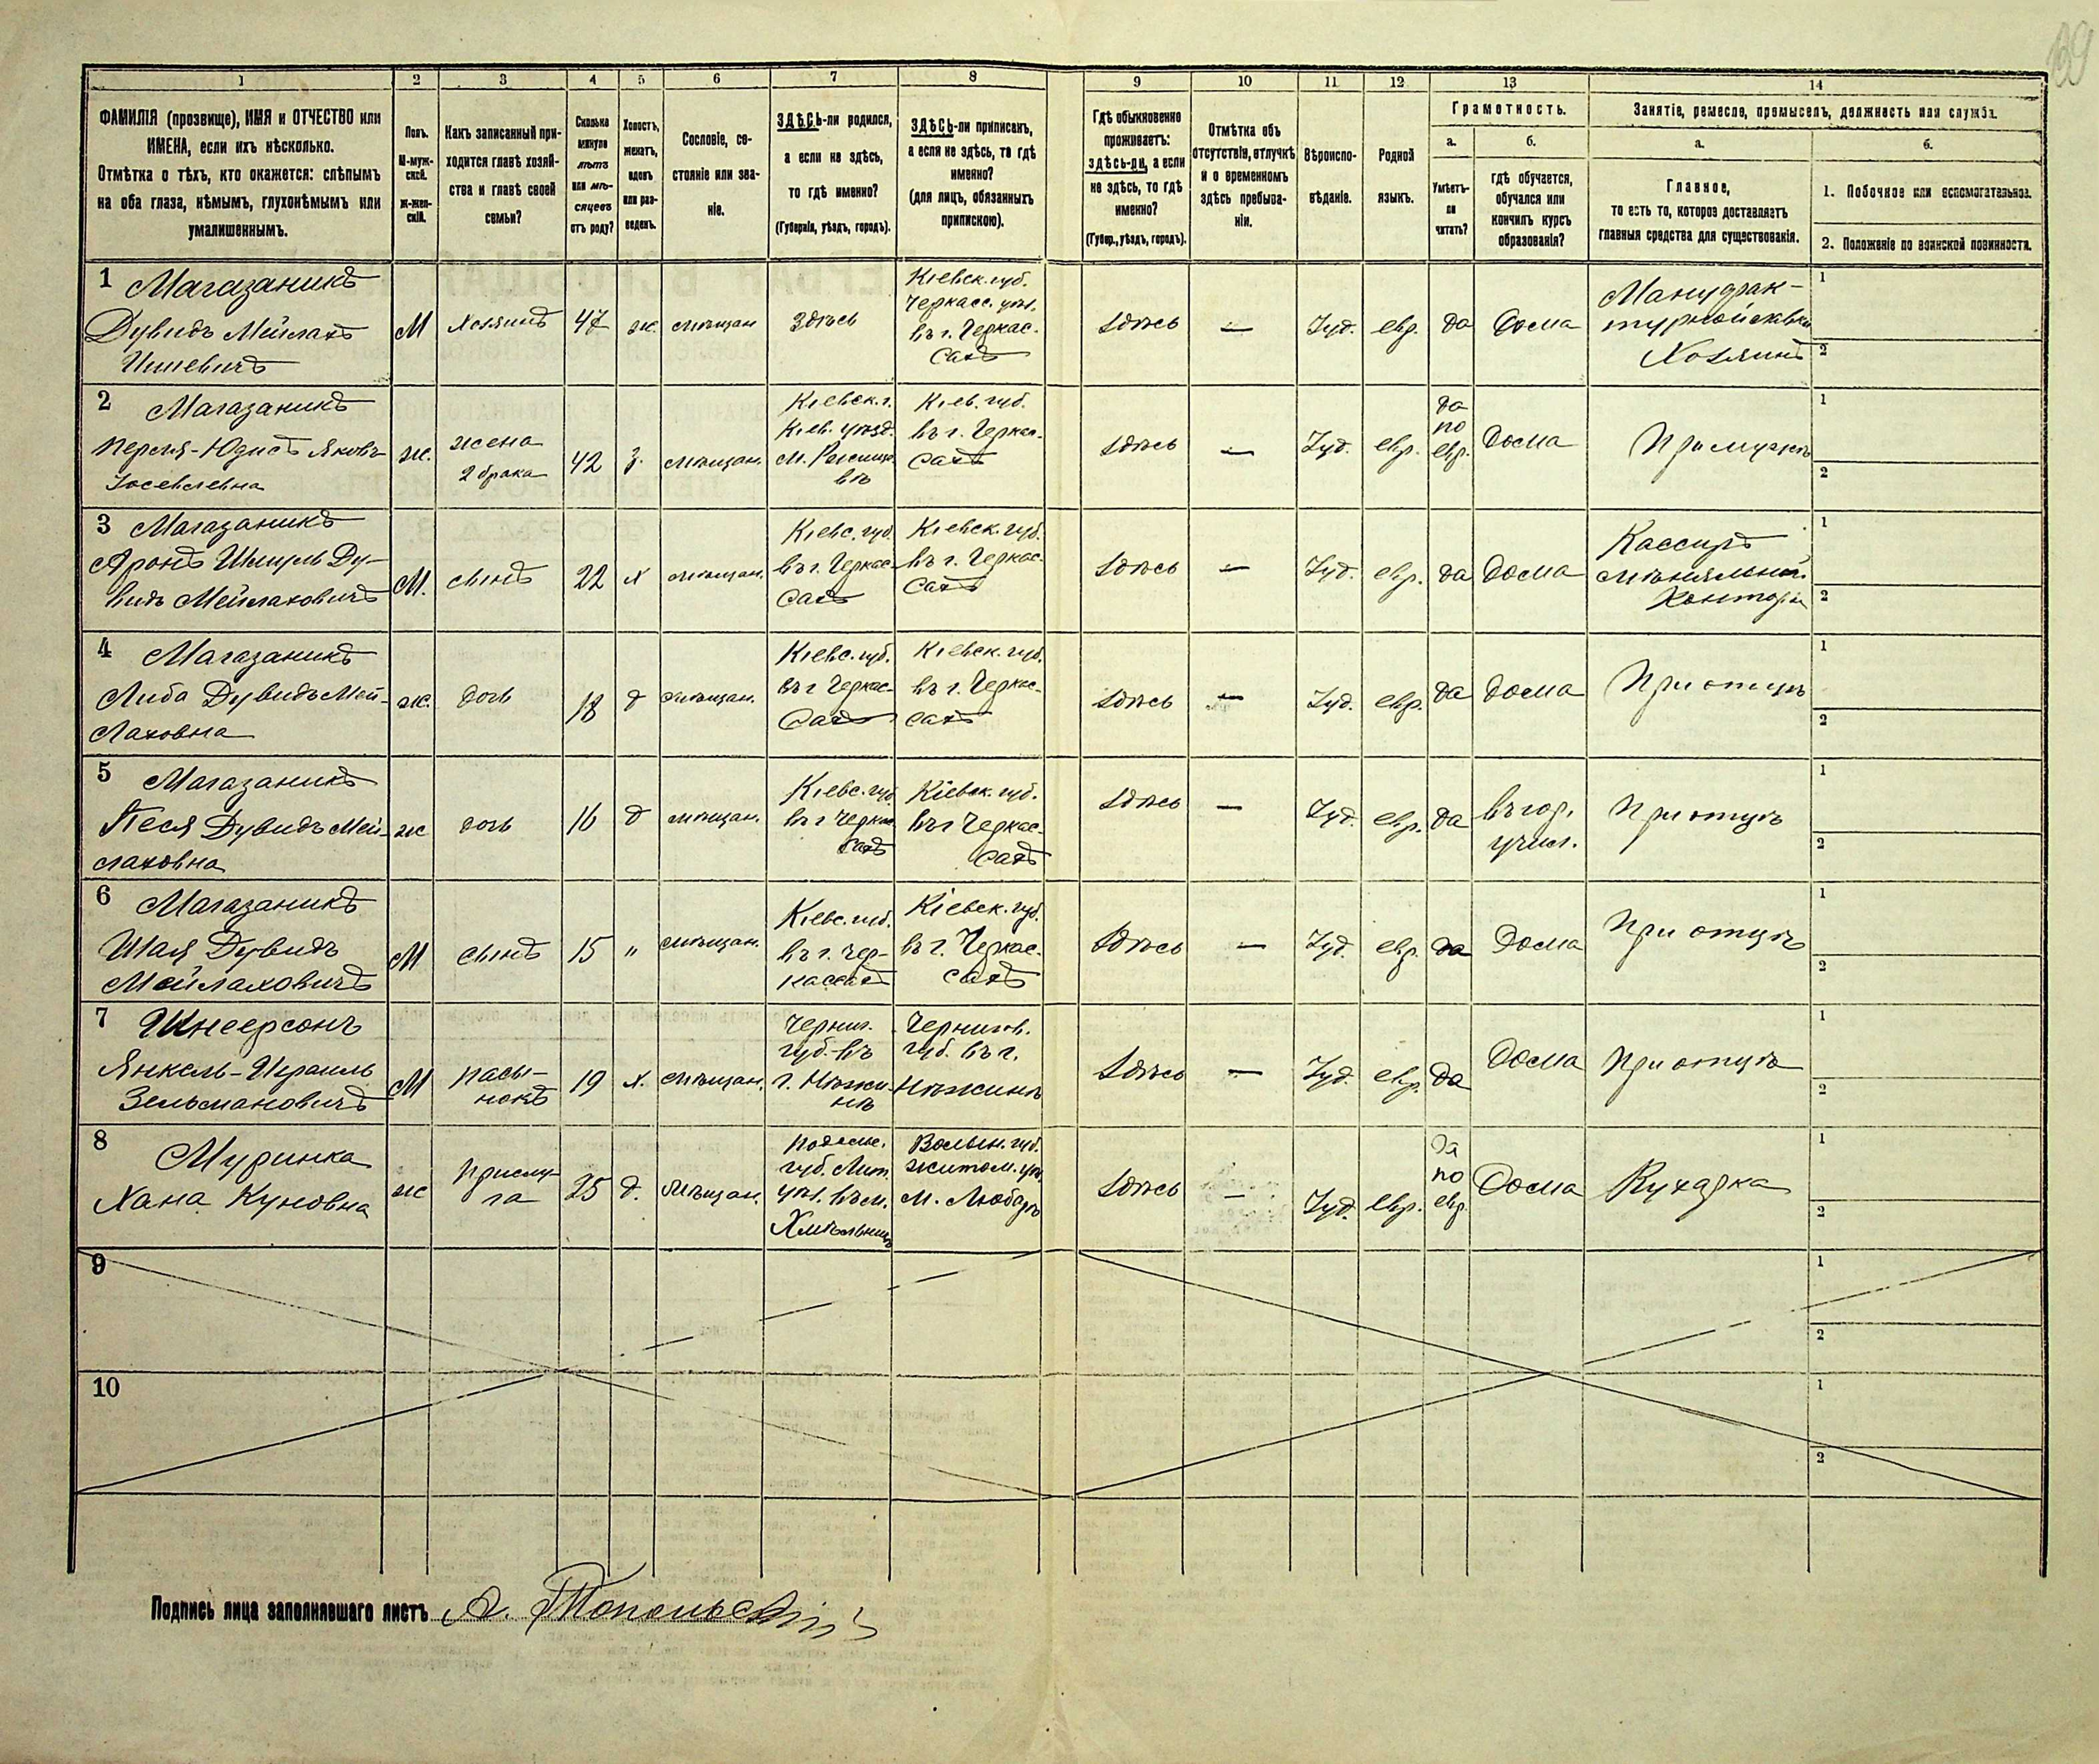 139
1 2 3 4 5 6 7 8 9 10 11 12 13 14
ФАМИЛІЯ (прозвище), ИМЯ и ОТЧЕСТВО или
ИМЕНА, если ихъ нѣсколько.
Отмѣтка о тѣхъ, кто окажется: слѣпымъ
на оба глаза, нѣмымъ, глухонѣмымъ или
умалишеннымъ.
Полъ.
М-муж-
ской.
Ж-жен-
скій.
Какъ записанный при-
ходится главѣ хозяй-
ства и главѣ своей
семьи?
Сколько
минуло
лѣтъ
или мѣ-
сяцевъ
отъ роду?
Холостъ,
женатъ,
вдовъ
или раз-
веденъ.
Сословіе, со-
стояніе или зва-
ніе.
ЗДѢСЬ-ли родился,
а если не здѣсь,
то гдѣ именно?
(Губернія, уѣздъ, городъ).
ЗДѢСЬ-ли приписанъ,
а если не здѣсь, то гдѣ
именно?
(для лицъ, обязанныхъ
припискою).
Гдѣ обыкновенно
проживаетъ:
здѣсь-ли, а если
не здѣсь, то гдѣ
именно?
(Губер., уѣздъ, городъ).
Отмѣтка объ
отсутствіи, отлучкѣ
и о временномъ
здѣсь пребыва-
ніи.
Вѣроиспо-
вѣданіе.
Родной
языкъ.
Грамотность.
а.
Умѣетъ-
ли
читать?
б.
гдѣ обучается,
обучался или
кончилъ курсъ
образованія?
Занятіе, ремесло, промыселъ, должность или служба.
а.
Главное,
то есть то, которое доставляетъ
главныя средства для существованія.
б.
1. Побочное или вспомогательное.
2. Положеніе по воинской повинности.
1 Магазаникъ
Дувидъ Мейлахъ
Ишевичъ
М
Хозяинъ
47
ж.
мѣщан
Здѣсь
Кіевск. губ.
Черкасс. уѣз.
въ г. Черкас-
сахъ
Здѣсь
—
Іуд.
евр.
да
Дома
Мануфак-
турной лавки
Хозяинъ
1
2
2 Магазаникъ
Перля-Юдисъ Янкевъ
Іосевлевна
ж.
жена
2 брака
42
з.
мѣщан.
Кіевск. г.
Кіев. уѣзд.
въ
Кіев. губ.
въ г. Черкас-
сахъ
Здѣсь
—
Іуд.
евр.
да
по
евр.
Дома
При мужѣ
1
2
3 Магазаникъ
Аронъ Шмуль Ду-
видъ Мейлаховичъ
М.
сынъ
22
х
мѣщан.
Кіевс. губ
въ г. Черкас-
сахъ
Кіевск. губ.
въ г. Черкас-
сахъ
Здѣсь
—
Іуд.
евр.
да
Дома
Кассиръ
мѣняльной
Конторы
1
2
4 Магазаникъ
Либа Дувидъ Мей-
лаховна
ж.
дочь
18
д
мѣщан.
Кіевс. губ.
въ г Черкас-
сахъ
Кіевск. губ.
въ г. Черкас-
сахъ
Здѣсь
—
Іуд.
евр.
да
Дома
При отцѣ
1
2
5 Магазаникъ
Песя Дувидъ Мей-
лаховна
ж
дочь
16
д
мѣщан.
Кіевс. губ
въ г Черкас
сахъ
Кіевск. губ.
въ г Черкас-
сахъ
Здѣсь
—
Іуд.
евр.
да
въ гор.
учил.
При отцѣ
1
2
6 Магазаникъ
Шая Дувидъ
Мейлаховичъ
М
сынъ
15
"
мѣщан.
Кіевс. губ.
въ г. Чер-
кассахъ
Кіевск. губ.
въ г. Черкас-
сахъ
Здѣсь
—
Іуд.
евр.
да
Дома
При отцѣ
1
2
7 Шнеерсонъ
Янкель-Израиль
Зельмановичъ
М
пасы-
нокъ
19
х.
мѣщан.
Черниг.
губ. въ
г. Нѣжи-
нѣ
Чернигов.
губ. въ г.
Нѣжинѣ
Здѣсь
—
Іуд.
евр.
да
Дома
При отцѣ
1
2
8 Муринка
Хана Куновна
ж
прислу-
га
25
д.
мѣщан.
Подольс.
губ. Лит.
уѣз. въ м.
Хмѣльникѣ
Волын. губ.
житом. уѣз.
м. Любарѣ
Здѣсь
—
Іуд.
евр.
да
по
евр.
Дома
Кухарка
1
2
9
1
2
10
1
2
Подпись лица заполнявшаго листъ А. Топольскій